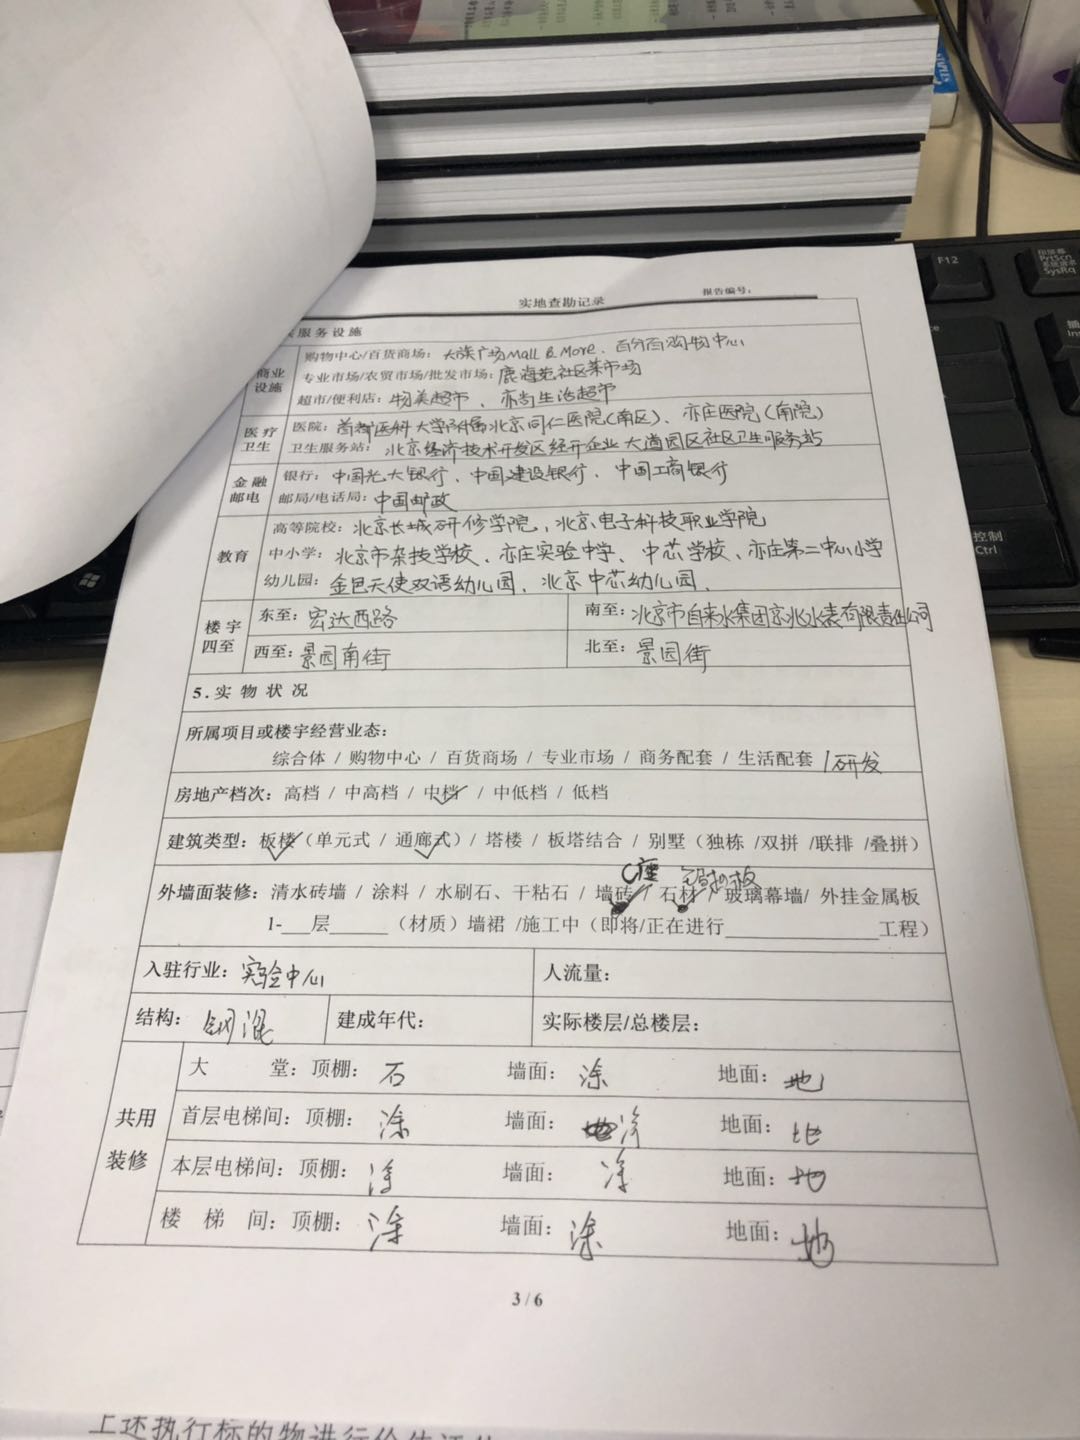 F12
印屏幕
PrtScn
系统请求
SysRq
控制
Ctrl
实地查勘记录
报告编号：
服务设施
商业设施
购物中心/百货商场：大族广场Mall & More、百分百购物中心
专业市场/农贸市场/批发市场：鹿海苑社区菜市场
超市/便利店：物美超市、亦尚生活超市
医疗卫生
医院：首都医科大学附属北京同仁医院（南区）、亦庄医院（南院）
卫生服务站：北京经济技术开发区经开企业大道园区社区卫生服务站
金融邮电
银行：中国光大银行、中国建设银行、中国工商银行
邮局/电话局：中国邮政
教育
高等院校：北京长城研修学院、北京电子科技职业学院
中小学：北京市杂技学校、亦庄实验中学、中芯学校、亦庄第二中心小学
幼儿园：金色天使双语幼儿园、北京中芯幼儿园、
楼宇四至
东至：宏达西路
南至：北京市自来水集团京兆水表有限责任公司
西至：景园南街
北至：景园街
5.实物状况
所属项目或楼宇经营业态：
综合体 / 购物中心 / 百货商场 / 专业市场 / 商务配套 / 生活配套 / 研发
房地产档次：高档 / 中高档 / 中档 / 中低档 / 低档
建筑类型：板楼（单元式 / 通廊式）/ 塔楼 / 板塔结合 / 别墅（独栋 /双拼 /联排 /叠拼）
C座 铝扣板
外墙面装修：清水砖墙 / 涂料 / 水刷石、干粘石 / 墙砖 / 石材 / 玻璃幕墙/ 外挂金属板
1-___层______（材质）墙裙 /施工中（即将/正在进行________________工程）
入驻行业：实验中心
人流量：
结构：钢混
建成年代：
实际楼层/总楼层：
共用装修
大堂：顶棚：石 墙面：涂 地面：地
首层电梯间：顶棚：涂 墙面：涂 地面：地
本层电梯间：顶棚：涂 墙面：涂 地面：地
楼梯间：顶棚：涂 墙面：涂 地面：地
3 / 6
上述执行标的物进行价值评估